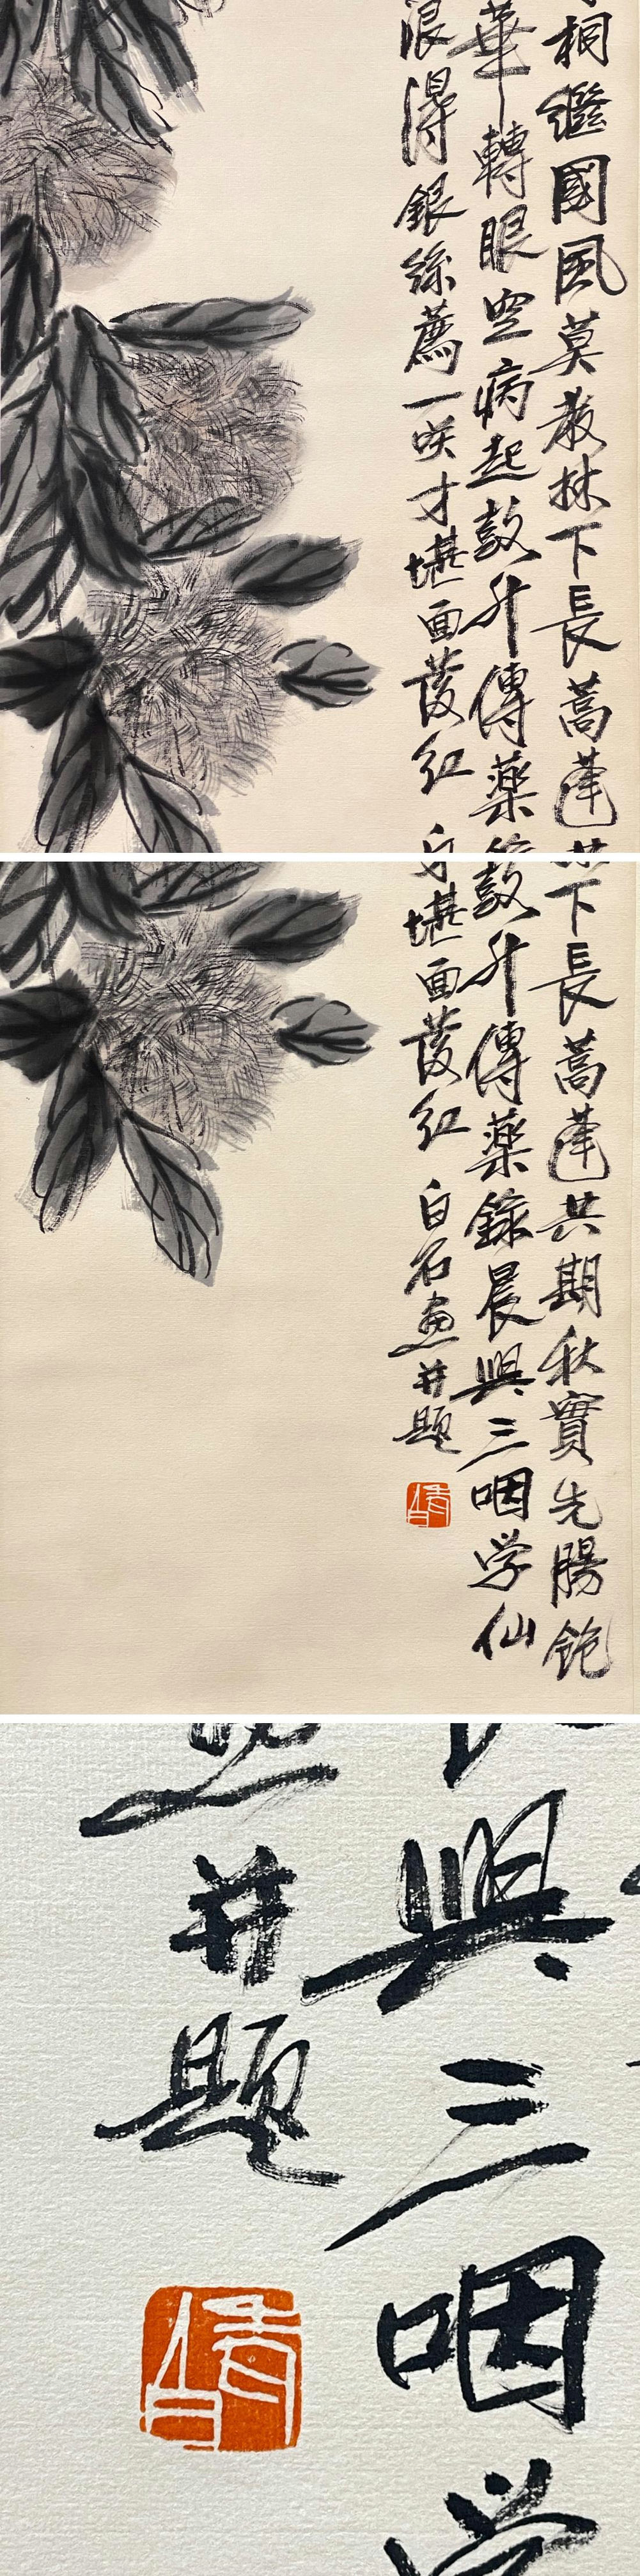 相繼國風莫教林下長蒿蓬
華轉眼空病起數升傳藥
浪得銀絲薦一咲才堪面發紅
下長蒿蓬共期秋實充腸飽
數升傳藥錄晨興三咽学仙
堪面發紅 白石畫并題
興三咽学
并題